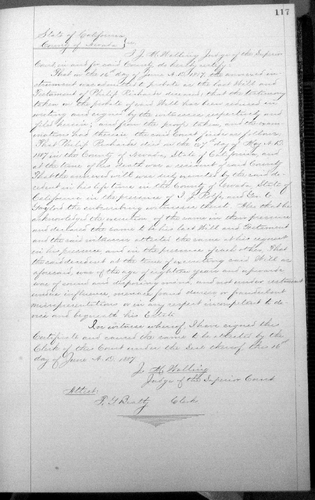 117
State of California
County of Nevada
I J. M. Walling Judge of the Superior
Court in and for said County do hereby certify
That on the 16 day of June A.D. 1887, the annexed in-
strument was admitted to probate as the last Will and
Testament of Philip Richards deceased, and the testimony
taken on the probate of said Will has been reduced in
writing and signed by the witnesses respectively and
filed therein; and from the proofs taken and exam-
inations had therein the said Court finds as follows:
That Philip Richards died on the day of May A.D.
1887 in the County of Nevada, State of California, and
at the time of his Death was a resident of said County.
That the annexed will was duly executed by the said de-
cedent in his life time in the County of Nevada, State of
California in the presence of and Geo. C.
the subscribing witnesses thereto. That he
acknowledged the execution of the same in their presence
and declared the same to be his last Will and Testament
and the said witnesses attested the same at his request
in his presence and in the presence of each other. That
the said decedent at the time of executing said Will as
aforesaid, was of the age of eighteen years and upwards,
was of sound and disposing mind and not under restraint
undue influence, menace, fraud duress or fraudulent
misrepresentations or in any respect incompetent to de-
vise and bequeath his Estate.
In witness whereof, I have signed this
Certificate and caused the same to be attested by the
Clerk of this Court under the Seal thereof this 16th
day of June A.D. 1887.
J. M. Walling
Judge of the Superior Court
Attest
Clerk